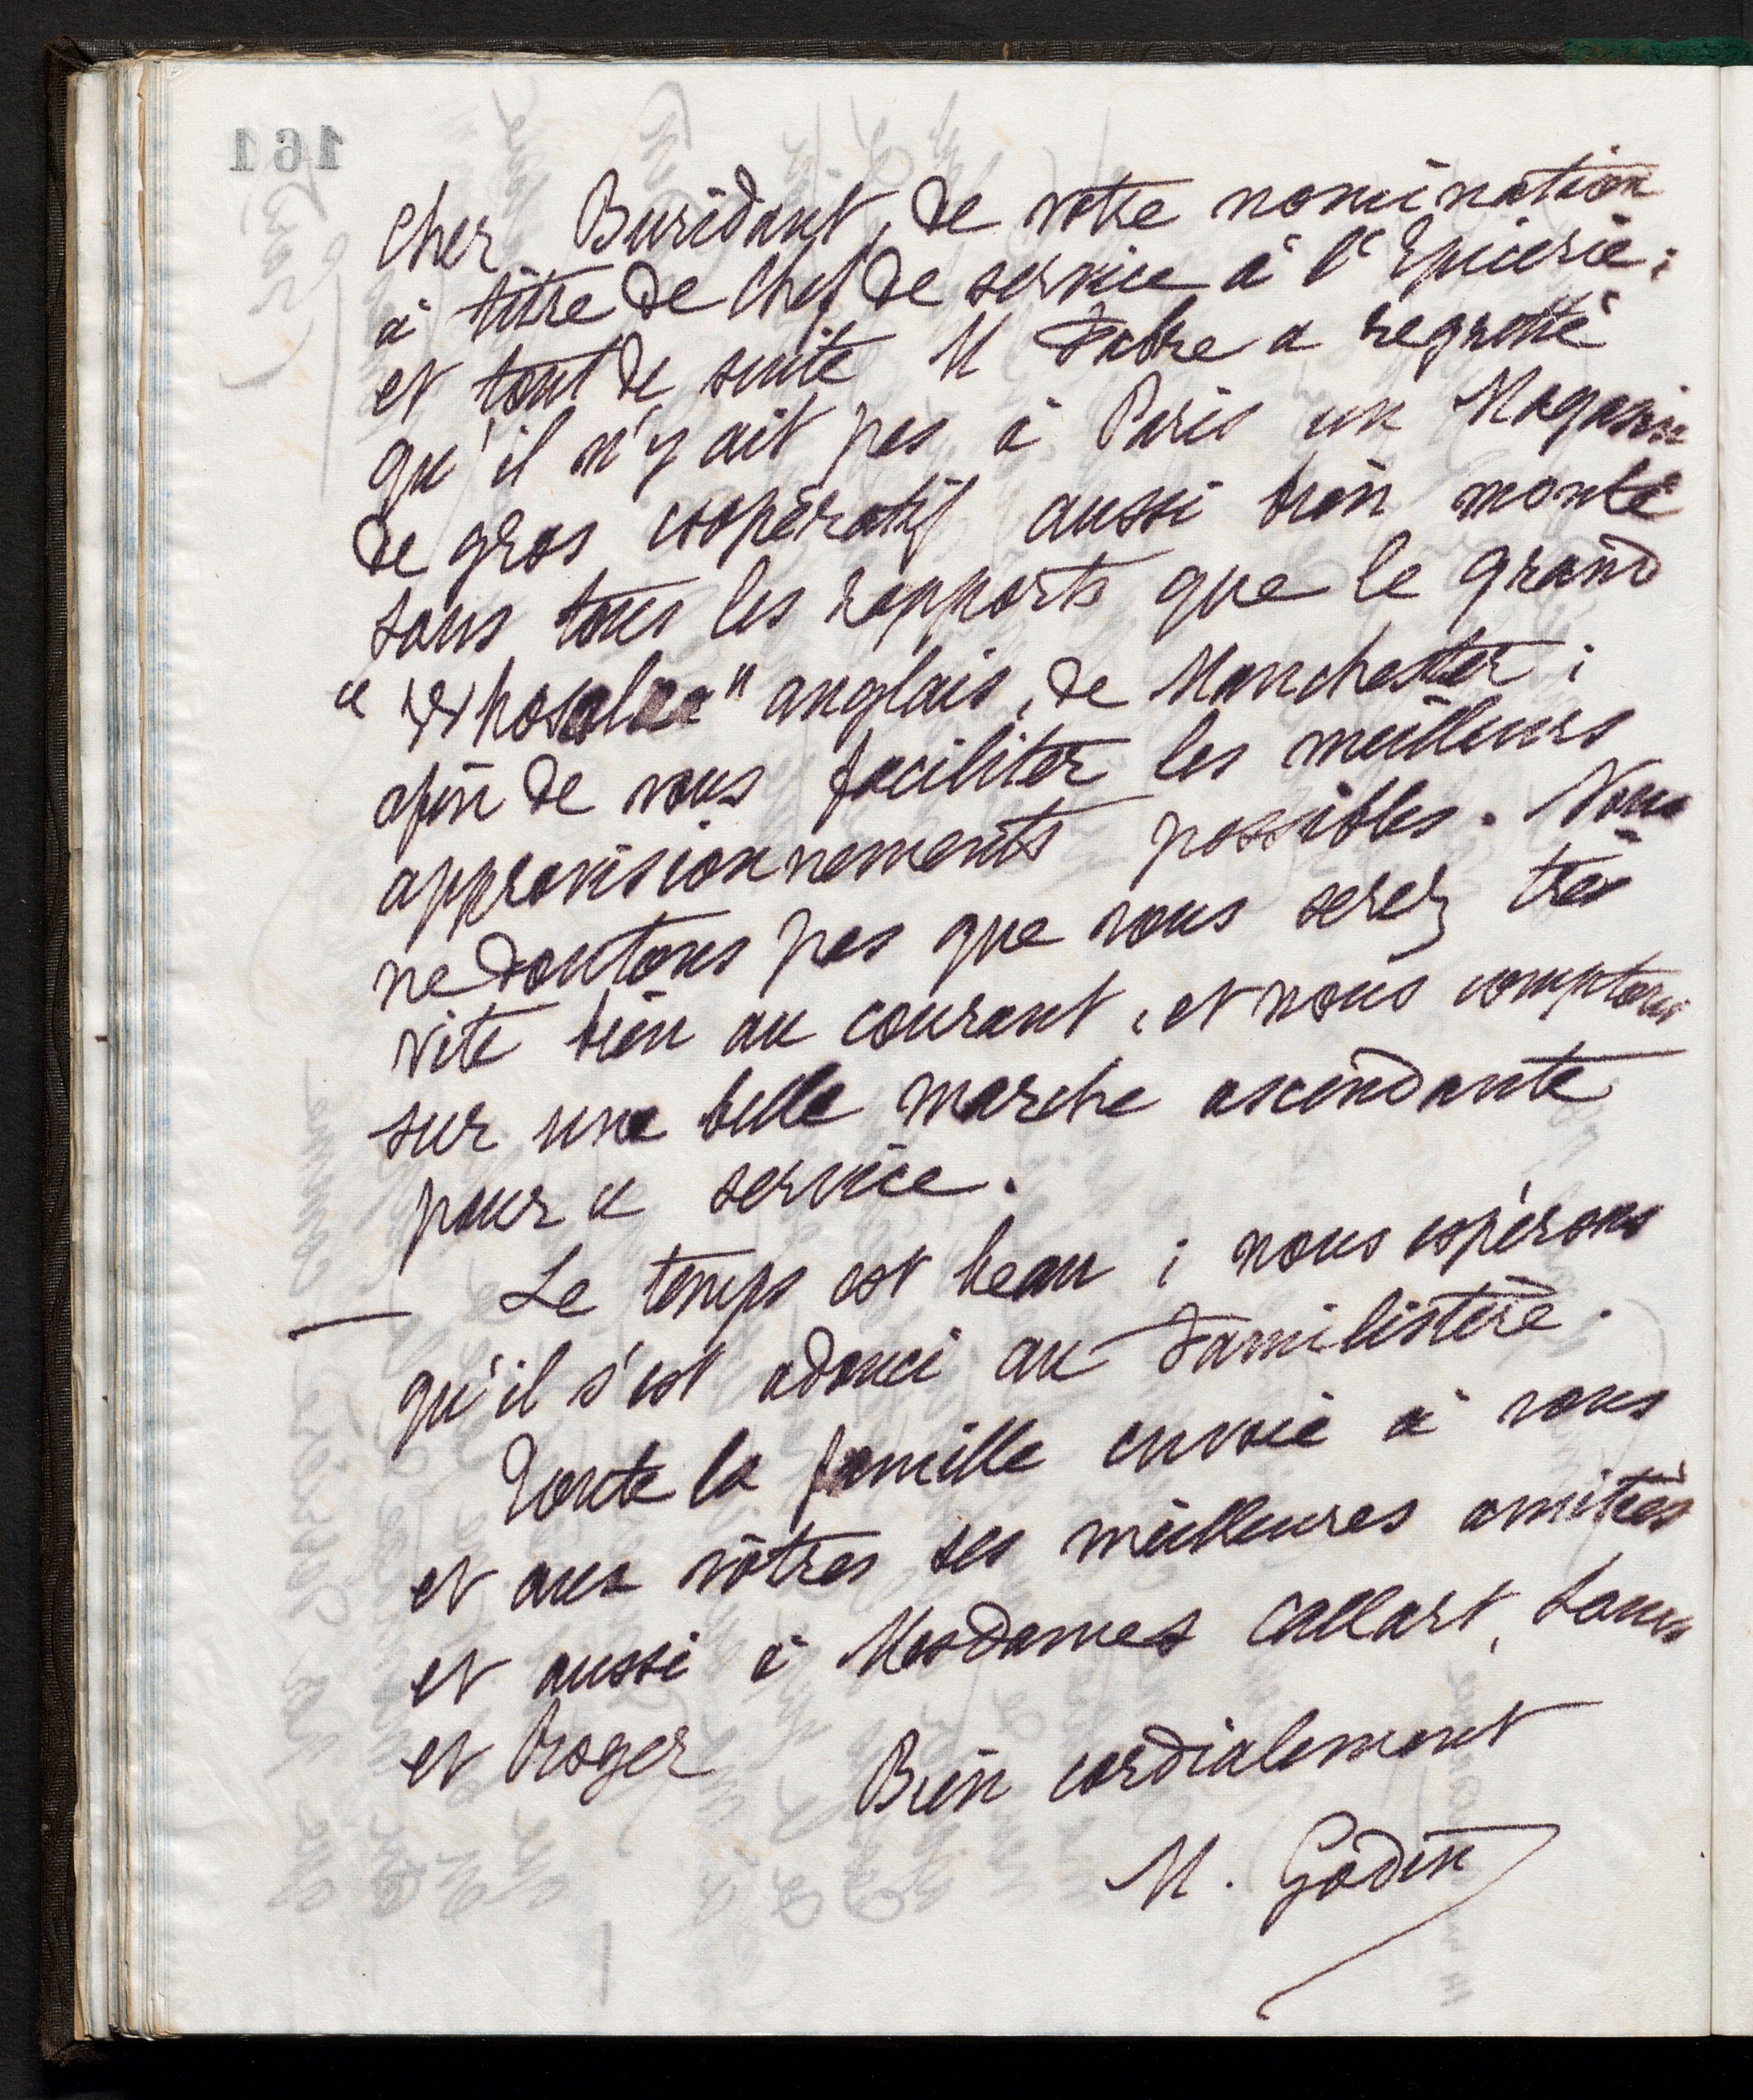 161
Cher Buridant, de votre nomination
à titre de Chef de service à l'Epicerie ;
et tout de suite M Fabre a regretté
qu'il n'y ait pas à Paris un Magasin
de gros coopératif aussi bien monté
sous tous les rapports que le grand
" " anglais, de Manchester ;
afin de vous faciliter les meilleurs
approvisionnements possibles. Nous
ne doutons pas que vous serez très
vite bien au courant, et nous comptons
sur une belle marche ascendante
pour ce service.
— Le temps est beau ; nous espérons
qu'il s'est adouci au Familistère.
Toute la famille envoie à vous
et aux vôtres ses meilleures amitiés
et aussi à Mesdames Callart, Louis
et Proger
Bien cordialement
M. Godin